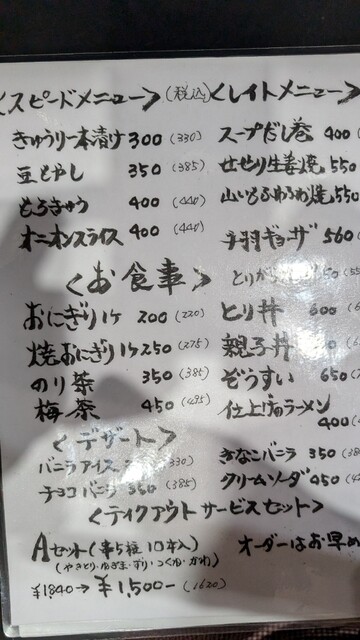 <スピードメニュー>(税込)<レイトメニュー>
きゅうり一本漬け 300 (330)
豆もやし 350 (385)
もろきゅう 400 (440)
オニオンスライス 400 (440)
スープだし巻 400
せせり生姜焼 550
山いもふわふわ焼 550
手羽ギョーザ 560
<お食事>
おにぎり1ケ 200 (220)
焼おにぎり1ケ 250 (275)
のり茶 350 (385)
梅茶 450 (495)
とり丼 600
親子丼
ぞうすい 650
仕上げのラーメン
400
<デザート>
バニラアイス 330)
チョコバニラ 350 (385)
きなこバニラ 350
クリームソーダ 450
<テイクアウトサービスセット>
Aセット(串5種10本入)
(やきとり・ねぎま・ずり・つくね・かわ)
¥1840→¥1,500- (1620)
オーダーはお早め